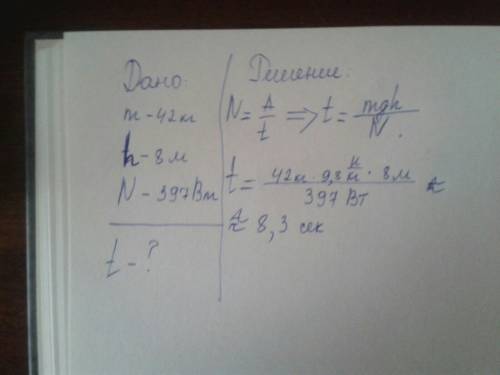 Дано:
m - 42 кг
h - 8 м
N - 397 Вт
t - ?
Решение:
N = A/t ⟹ t = mgh/N.
t = 42 кг · 9,8 Н/кг · 8 м / 397 Вт ≈
≈ 8,3 сек